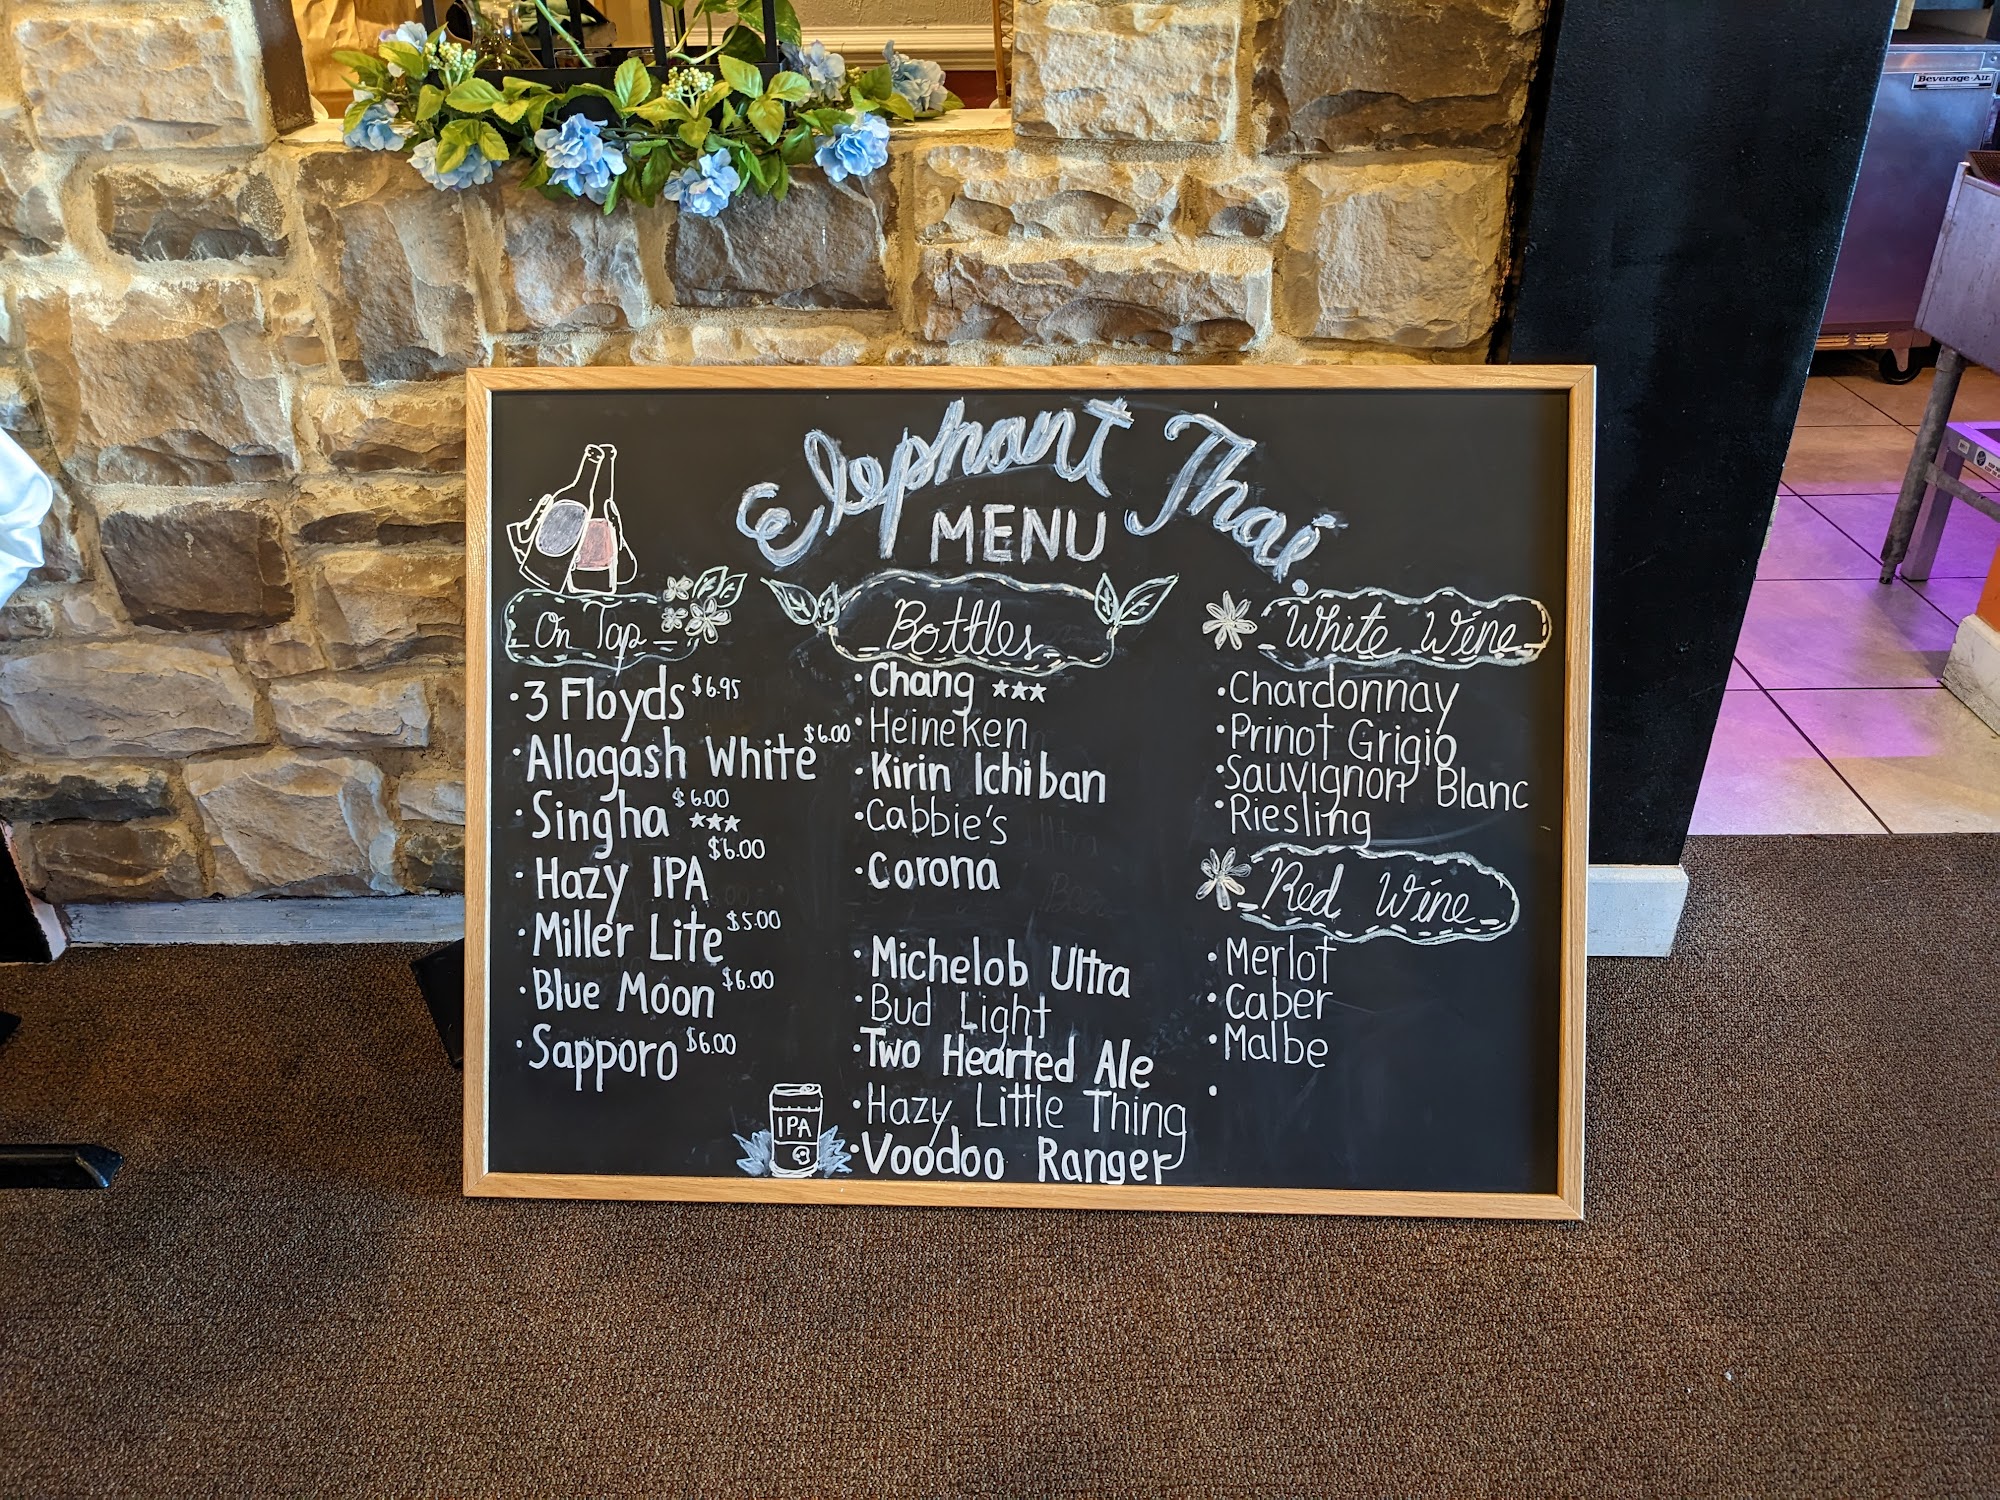 Elephant Thai
MENU
On Tap
• 3 Floyds $6.95
• Allagash White $6.00
• Singha $6.00 ★★★
• Hazy IPA $6.00
• Miller Lite $5.00
• Blue Moon $6.00
• Sapporo $6.00
Bottles
• Chang ★★★
• Heineken
• Kirin Ichiban
• Cabbie's
• Corona
• Michelob Ultra
• Bud Light
• Two Hearted Ale
• Hazy Little Thing
• Voodoo Ranger
IPA
White Wine
• Chardonnay
• Prinot Grigio
• Sauvignon Blanc
• Riesling
Red Wine
• Merlot
• Caber
• Malbe
•
Beverage-Air